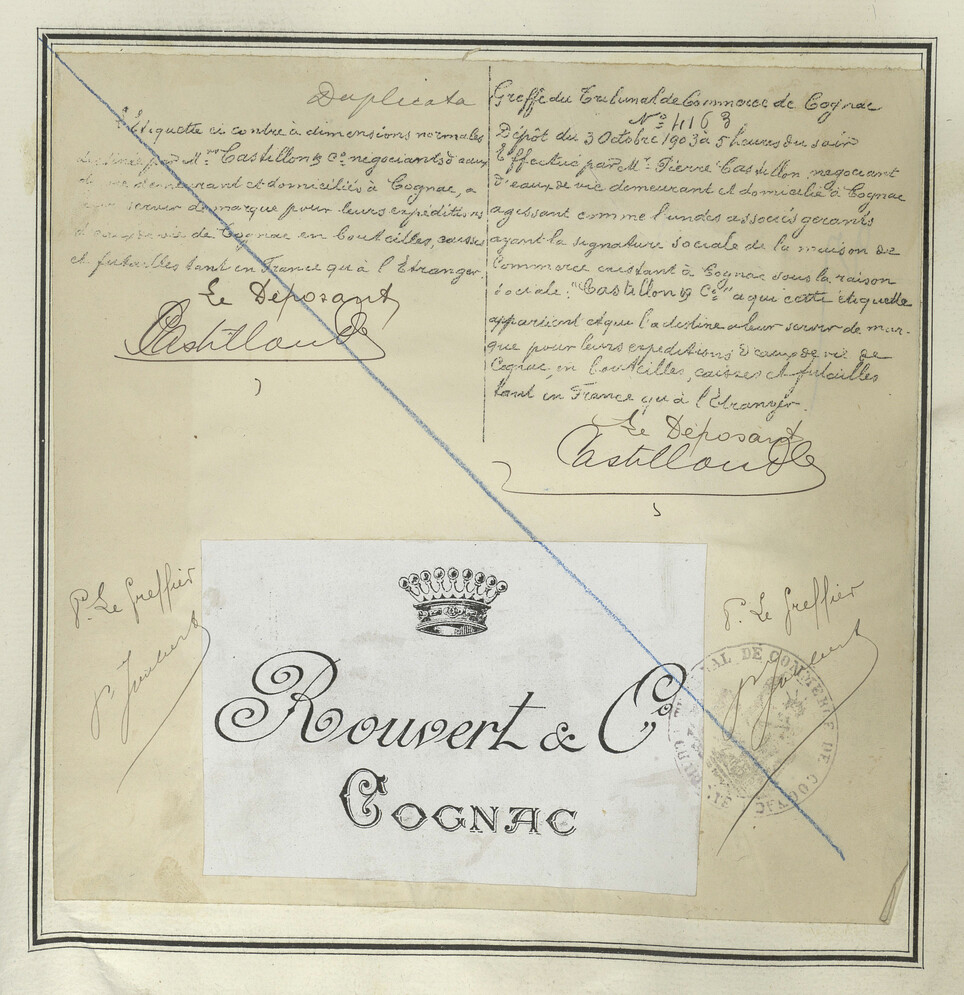 Duplicata
L'Etiquette ci contre à dimensions normales
destinée par M.rs Castillon & Co négociants d'eaux
de vie demeurant et domiciliés à Cognac, a
servir de marque pour leurs expéditions
d'eaux de vie de Cognac en bouteilles, caisses
et futailles tant en France qu'à l'Etranger
Le Déposant
Castillon & Co
Greffe du Tribunal de Commerce de Cognac
No 4163
Dépôt du 3 Octobre 1903 à 5 heures du soir
Effectué par Mr. Pierre Castillon, négociant
d'eaux de vie demeurant et domicilié à Cognac
agissant comme l'un des associés gerants
ayant la signature sociale de la maison de
Commerce existant à Cognac sous la raison
sociale: "Castillon & Co" a qui cette étiquette
appartient et qui l'a destine a leur servir de mar-
que pour leurs expeditions d'eaux de vie de
Cognac, en bouteilles, caisses et futailles
tant en France qu'à l'Etranger.
Le Déposant
Castillon & Co
P. Le Greffier
Rouvert & Co
COGNAC
P. Le Greffier
TRIBUNAL DE COMMERCE DE COGNAC